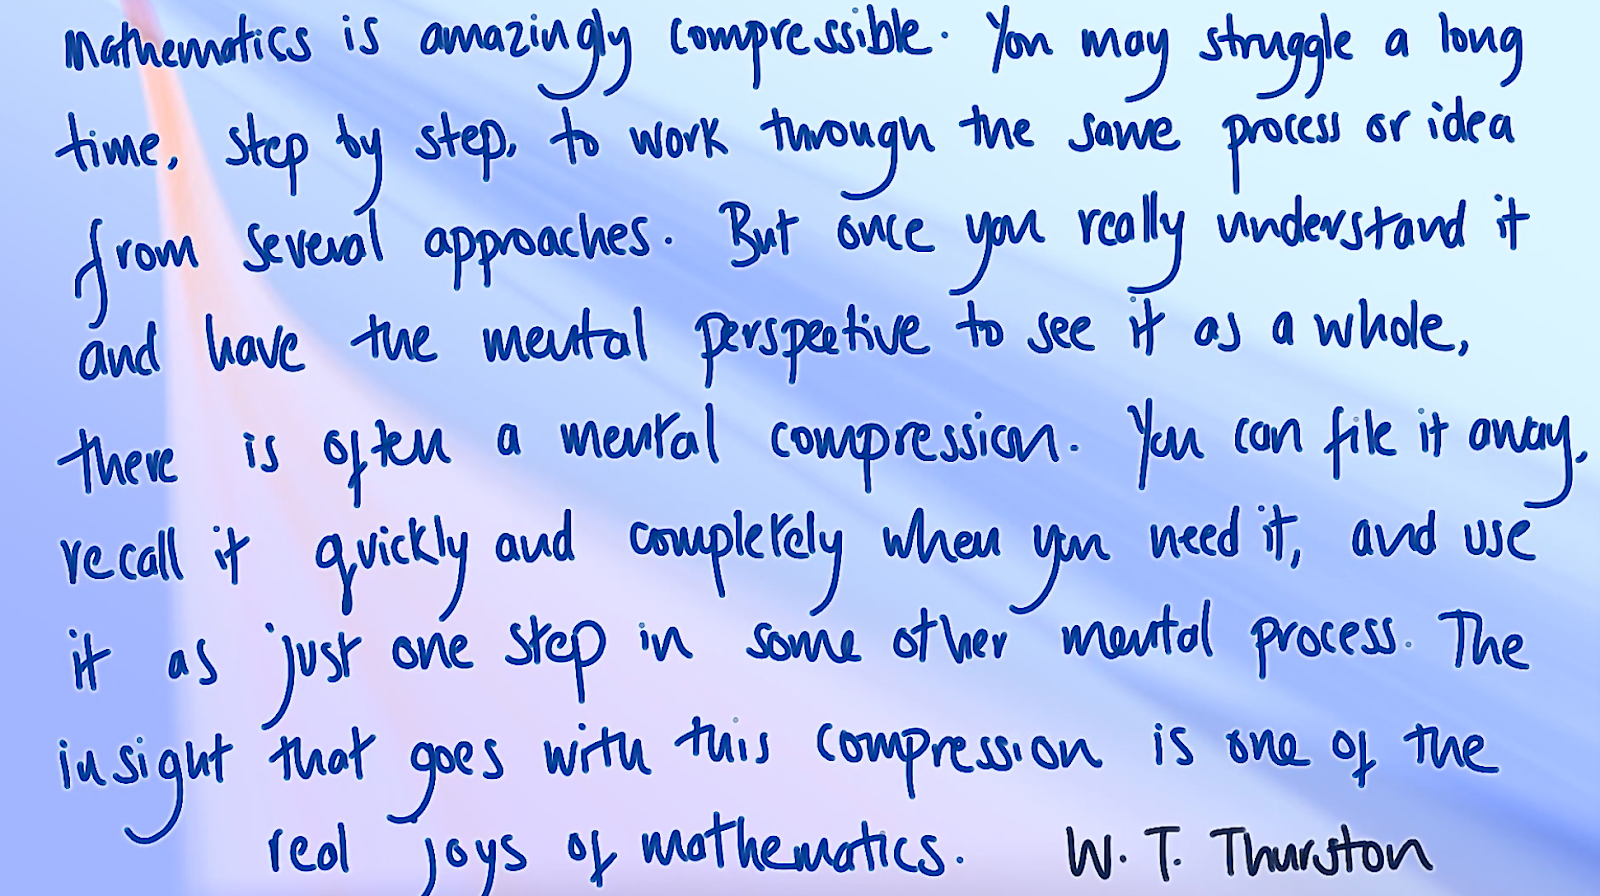 Mathematics is amazingly compressible. You may struggle a long
time, step by step, to work through the same process or idea
from several approaches. But once you really understand it
and have the mental perspective to see it as a whole,
there is often a mental compression. You can file it away,
recall it quickly and completely when you need it, and use
it as just one step in some other mental process. The
insight that goes with this compression is one of the
real joys of mathematics. W. T. Thurston